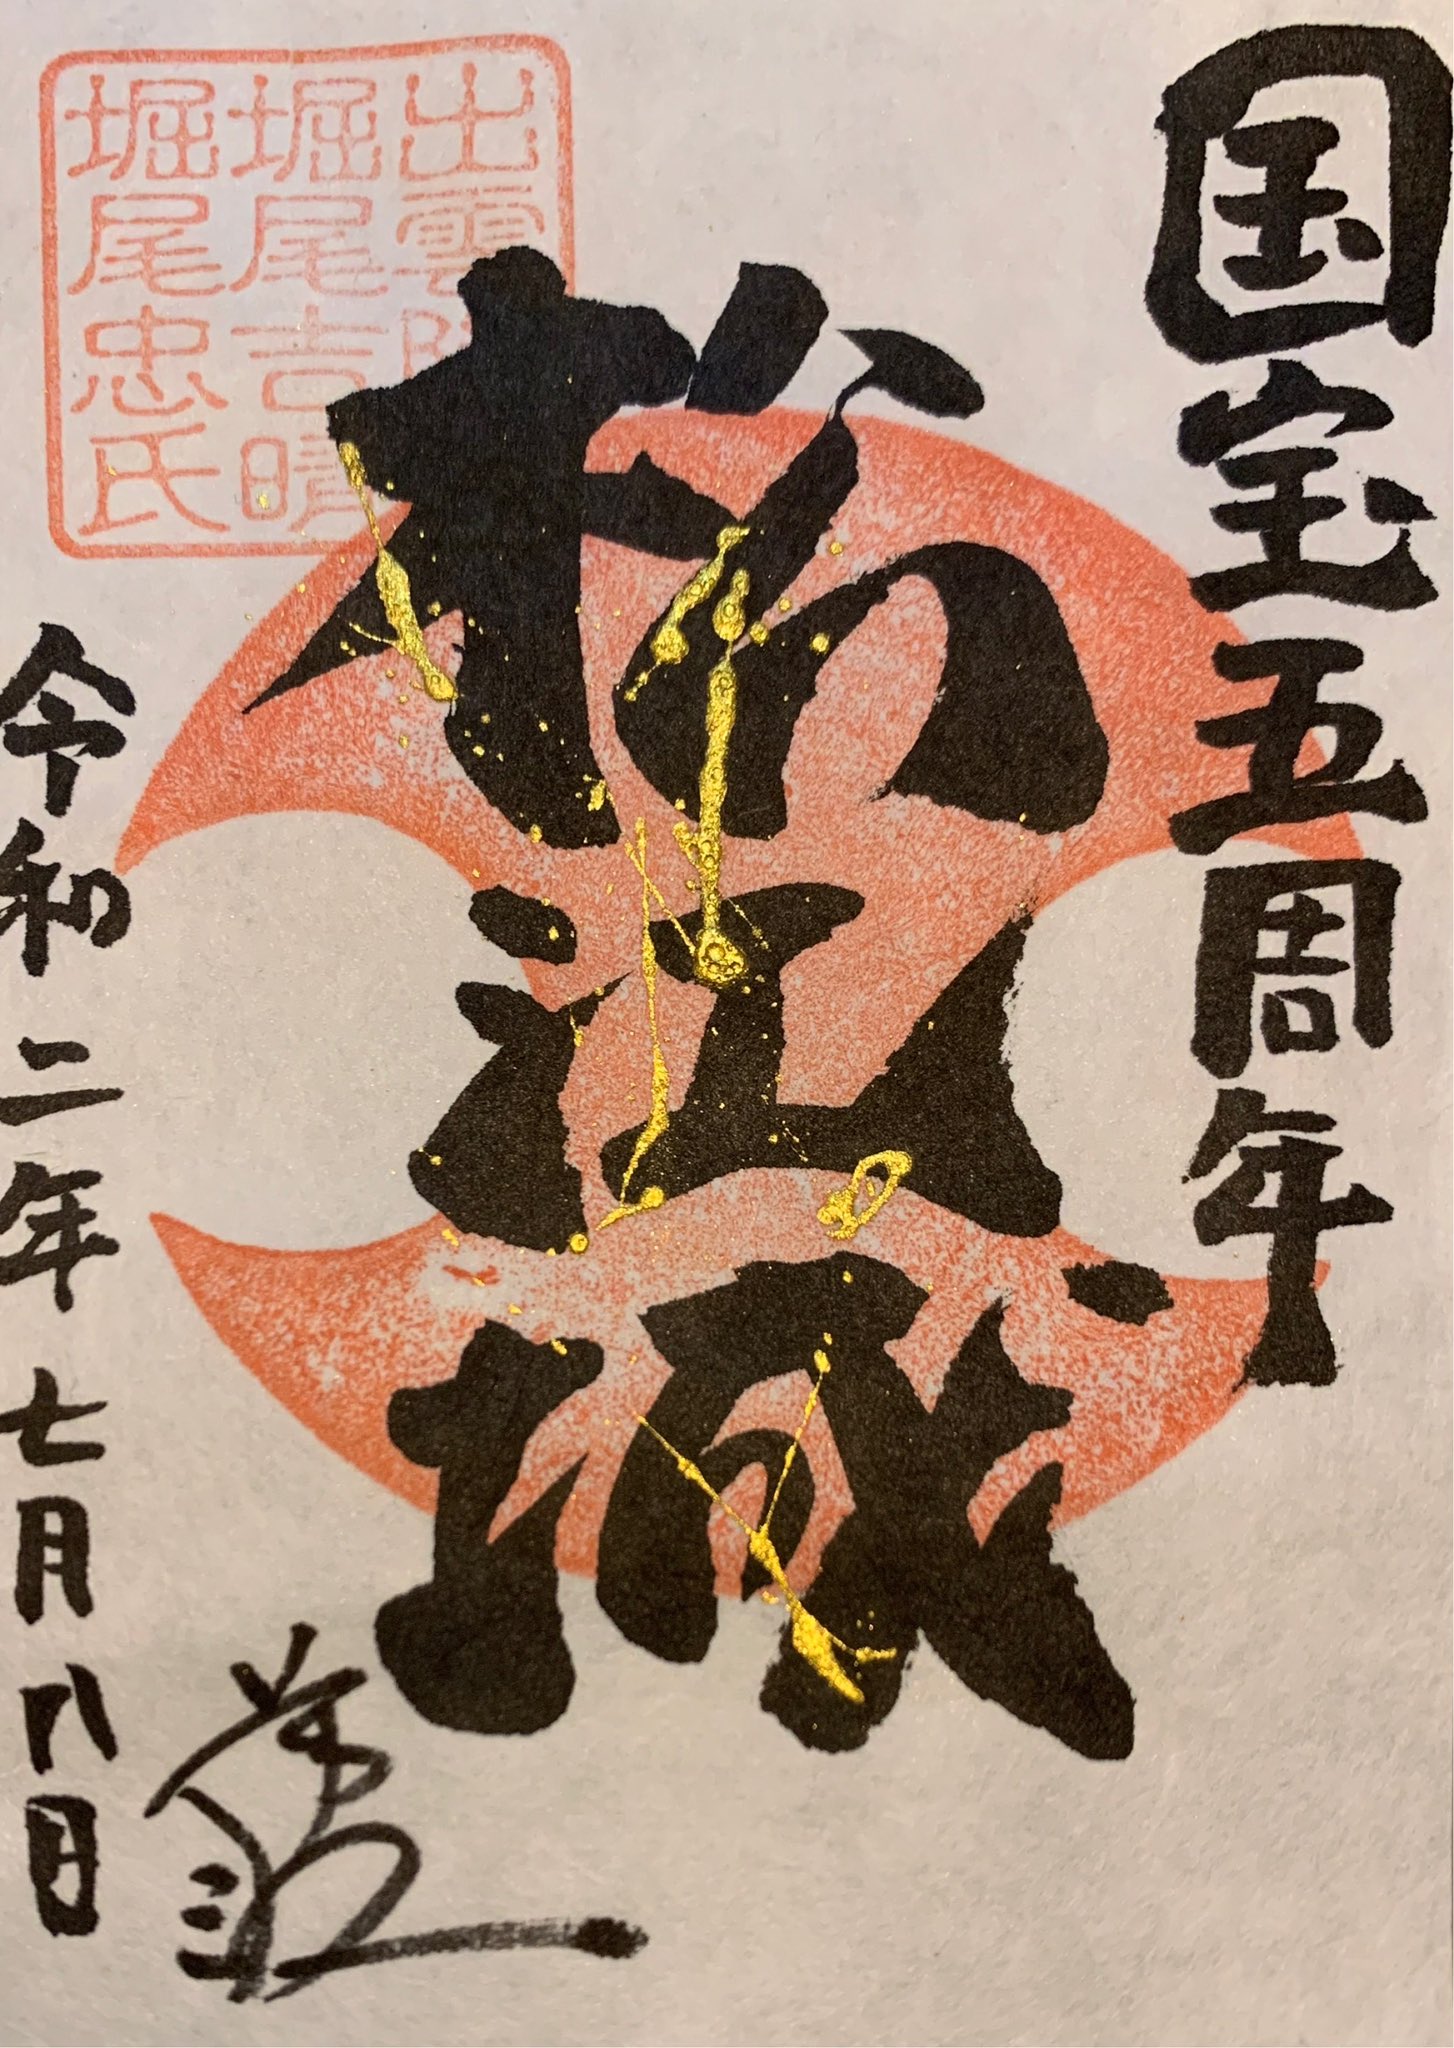 国宝五周年
松江城
出雲
堀尾吉晴
堀尾忠氏
令和二年七月八日